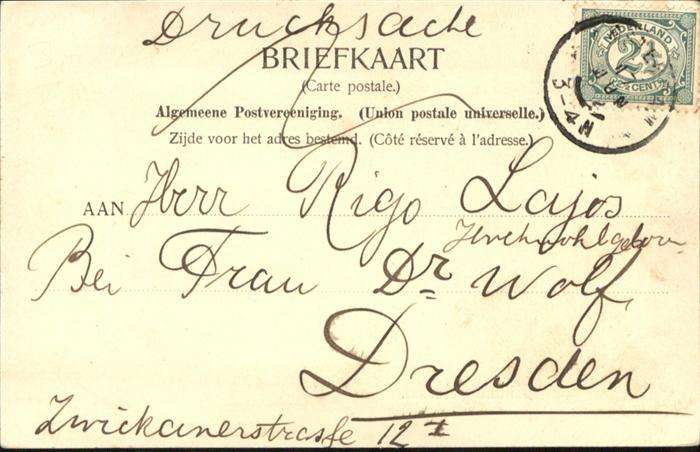 Drucksache
BRIEFKAART
(Carte postale.)
Algemeene Postvereeniging. (Union postale universelle.)
Zijde voor het adres bestemd. (Côté réservé à l'adresse.)
AAN Herr Rigo Lajos
Hochwohlgeboren
Bei Frau Dr Wolf,
Dresden
Zwickauerstrasse 12 I
NEDERLAND
2½
CENT
3-4 N